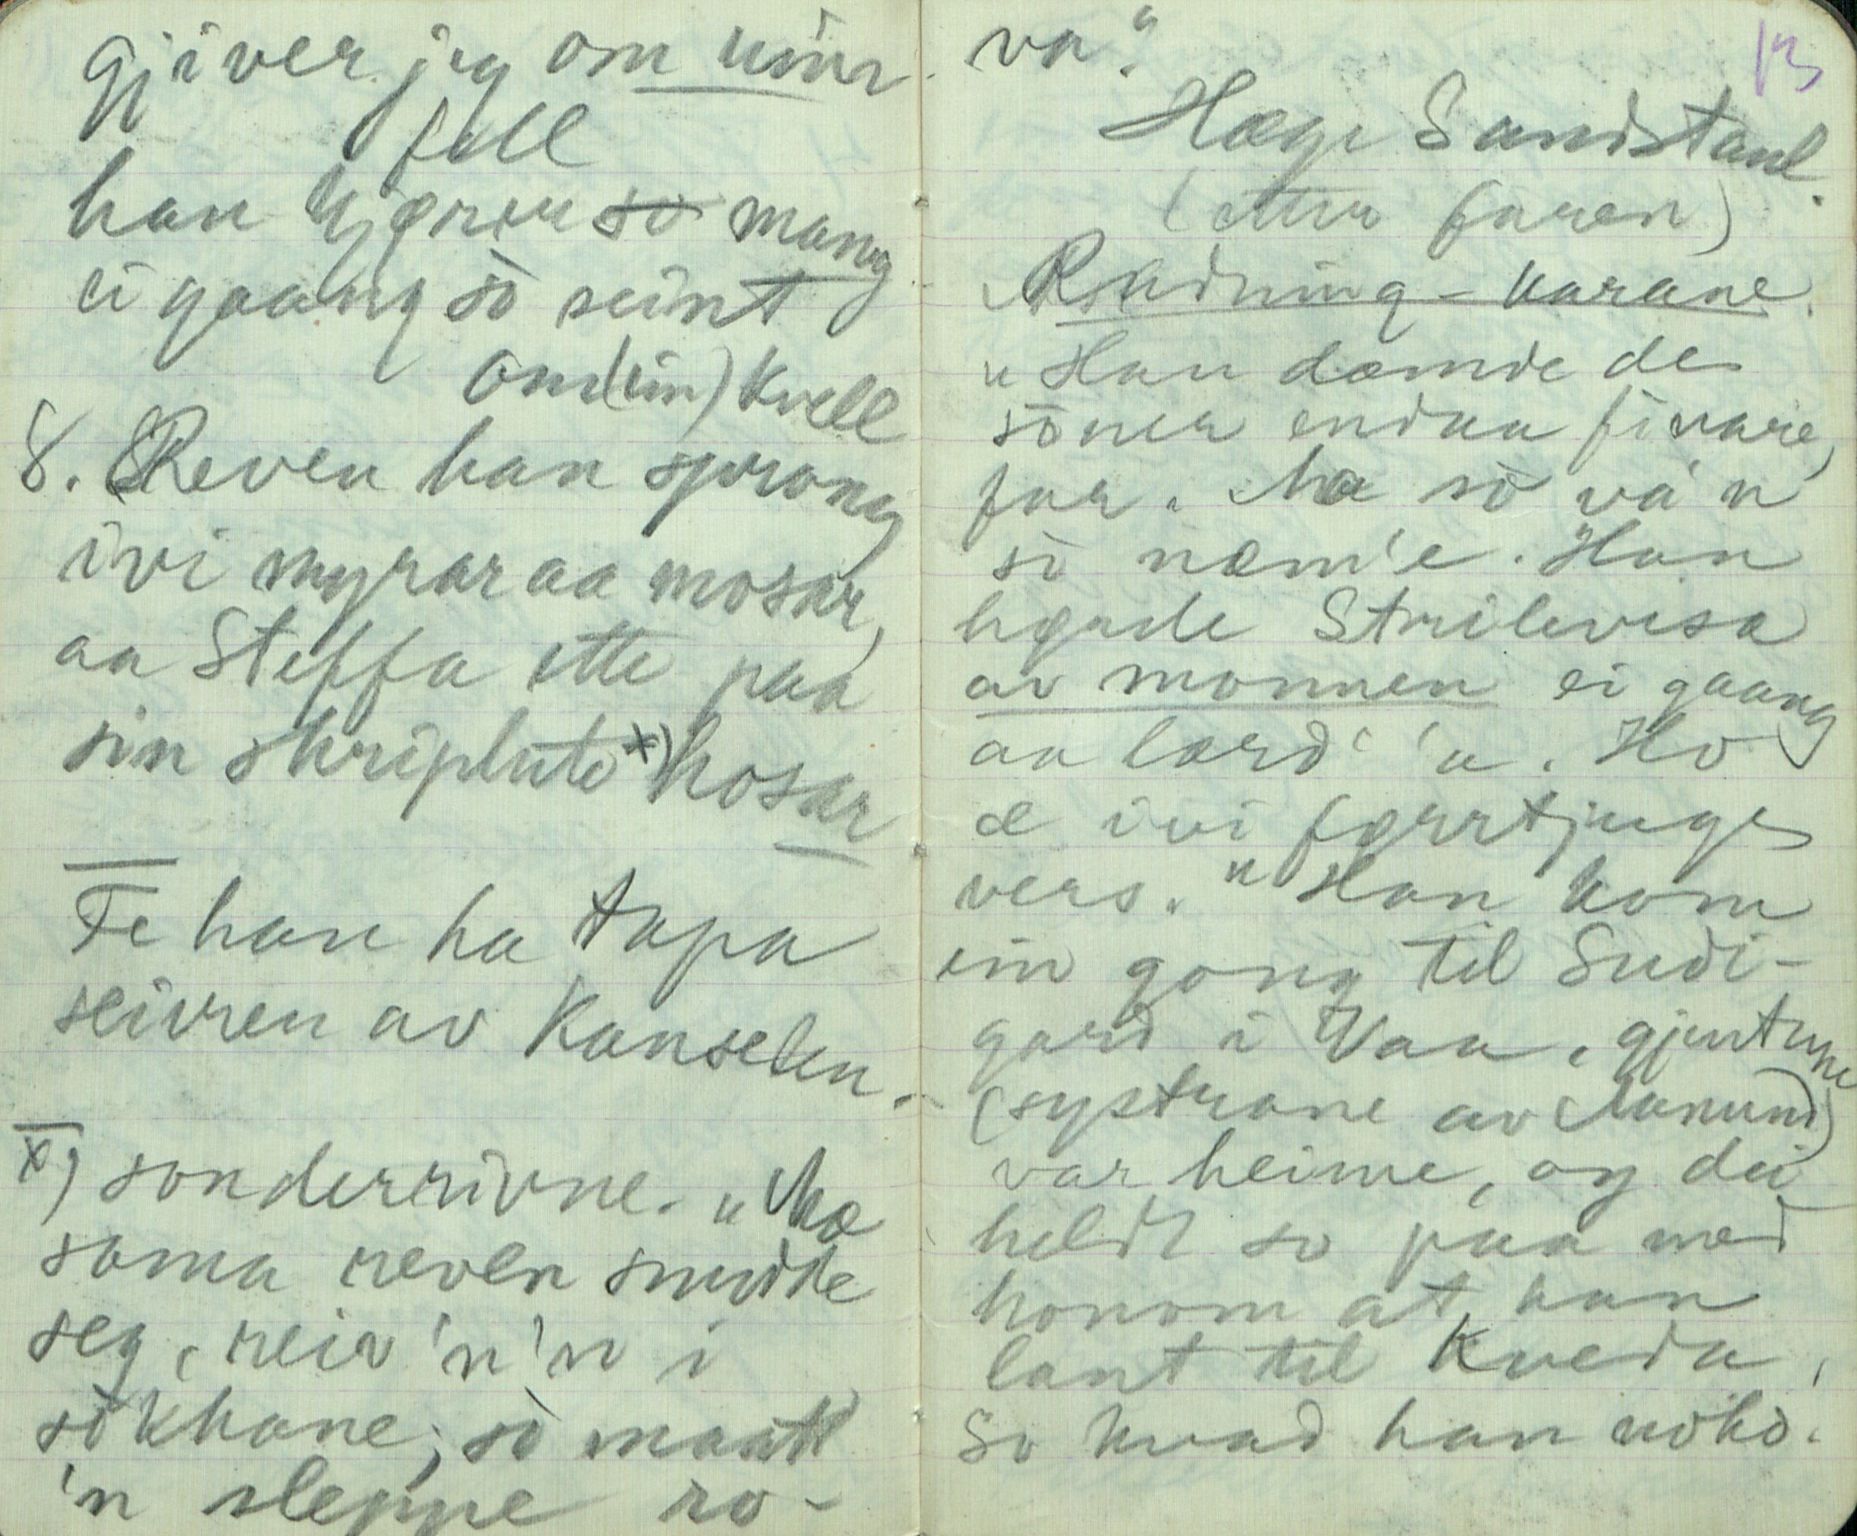 gjiver jeg om min
fell
han kjører so mang
ei gaang sò seint
om (ein) kvell
8. Reven han sprong
ivi myrar aa mosar,
aa Steffa ette paa
sin skriplute x) hosar
Fe han ha tapa
seivren av Kanselen.
x) sonderrivne. "Mæ
soma reven snudde
seg, reiv 'n 'n i
sòkkane, sò maatt
'n sleppe ro-
va".
13
Hæge Sandstaul.
(etter faren)
Rudning-karane.
"Han dæmde de
sòner endaa finare,
far. Mæ sò va'n
sò næm'e. Han
høyrde Strilevisa
av monnen ei gaang
aa lærd' 'a. Ho
æ ivi førrtjuge
vers." Han kom
ein gong til Sudi-
gard i Vaa, gjentune
(systrane av Aanund)
var heime, og dei
heldt so paa med
honom at han
laut til kveda,
So kvad han noko.